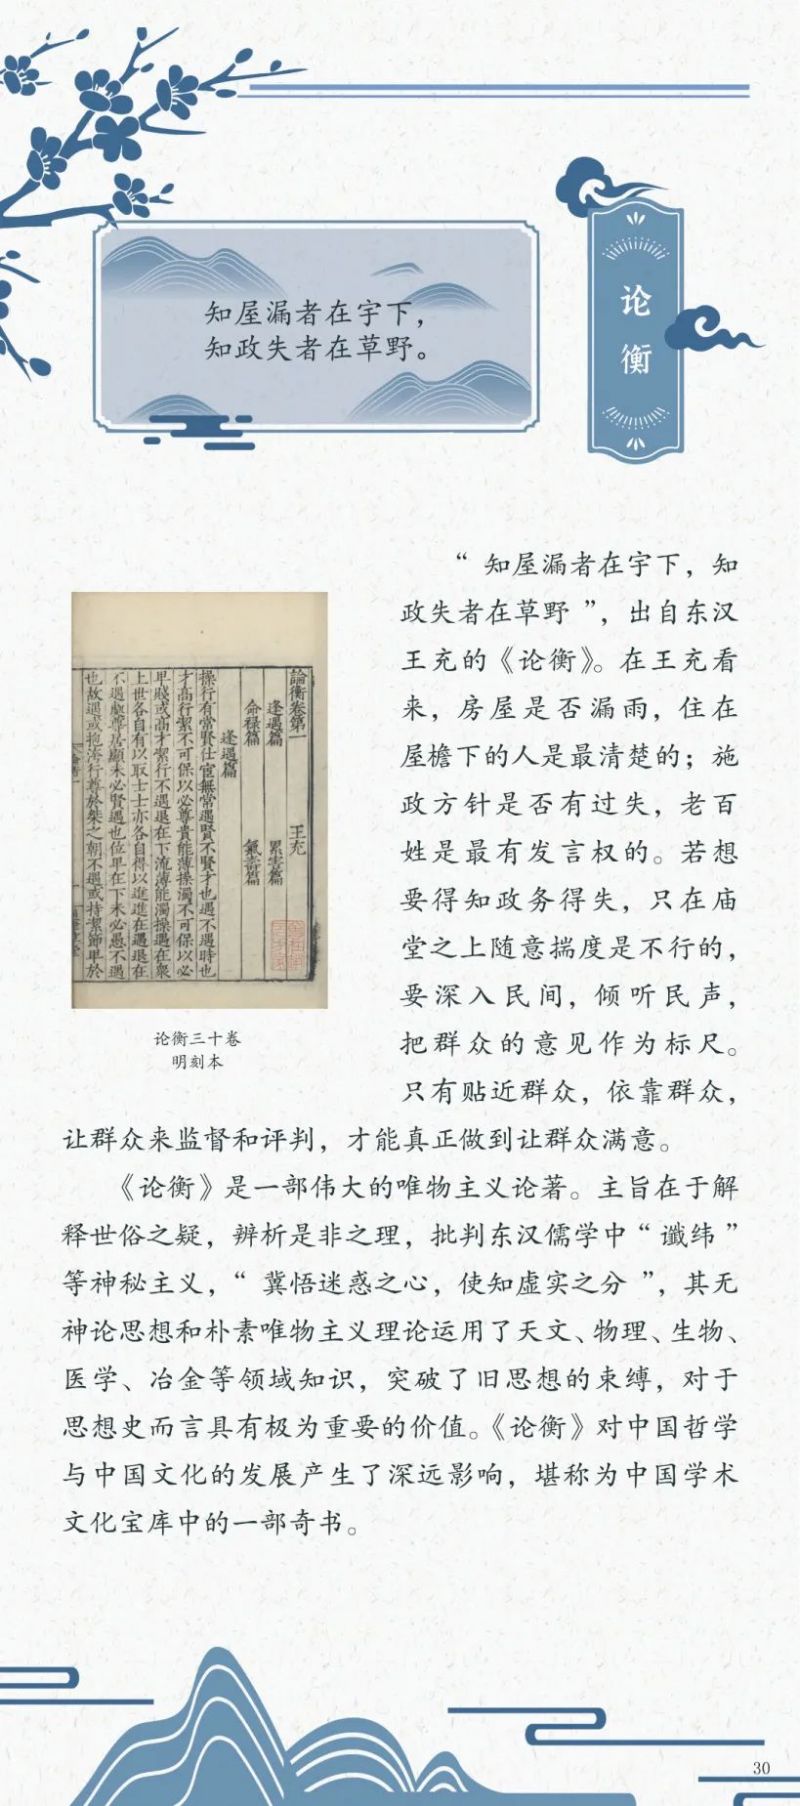 知屋漏者在宇下，
知政失者在草野。
论衡
“知屋漏者在宇下，知
政失者在草野”，出自东汉
王充的《论衡》。在王充看
来，房屋是否漏雨，住在
屋檐下的人是最清楚的；施
政方针是否有过失，老百
姓是最有发言权的。若想
要得知政务得失，只在庙
堂之上随意揣度是不行的，
要深入民间，倾听民声，
把群众的意见作为标尺。
只有贴近群众，依靠群众，
让群众来监督和评判，才能真正做到让群众满意。
論衡卷第一 王充
逢遇篇 累害篇
命祿篇 氣壽篇
逢遇篇
操行有常賢仕宦無常遇賢不賢才也遇不遇時也
才高行潔不可保以必尊貴能薄操濁不可保以必
卑賤或高才潔行不遇退在下流薄能濁操遇在衆
上世各自有以取士士亦各自得以進進在遇退在
不遇處尊居顯未必賢遇也位卑在下未必愚不遇
也故遇或抱洿行尊於桀之朝不遇或持潔節卑於
论衡三十卷
明刻本
《论衡》是一部伟大的唯物主义论著。主旨在于解
释世俗之疑，辨析是非之理，批判东汉儒学中“谶纬”
等神秘主义，“冀悟迷惑之心，使知虚实之分”，其无
神论思想和朴素唯物主义理论运用了天文、物理、生物、
医学、冶金等领域知识，突破了旧思想的束缚，对于
思想史而言具有极为重要的价值。《论衡》对中国哲学
与中国文化的发展产生了深远影响，堪称为中国学术
文化宝库中的一部奇书。
30